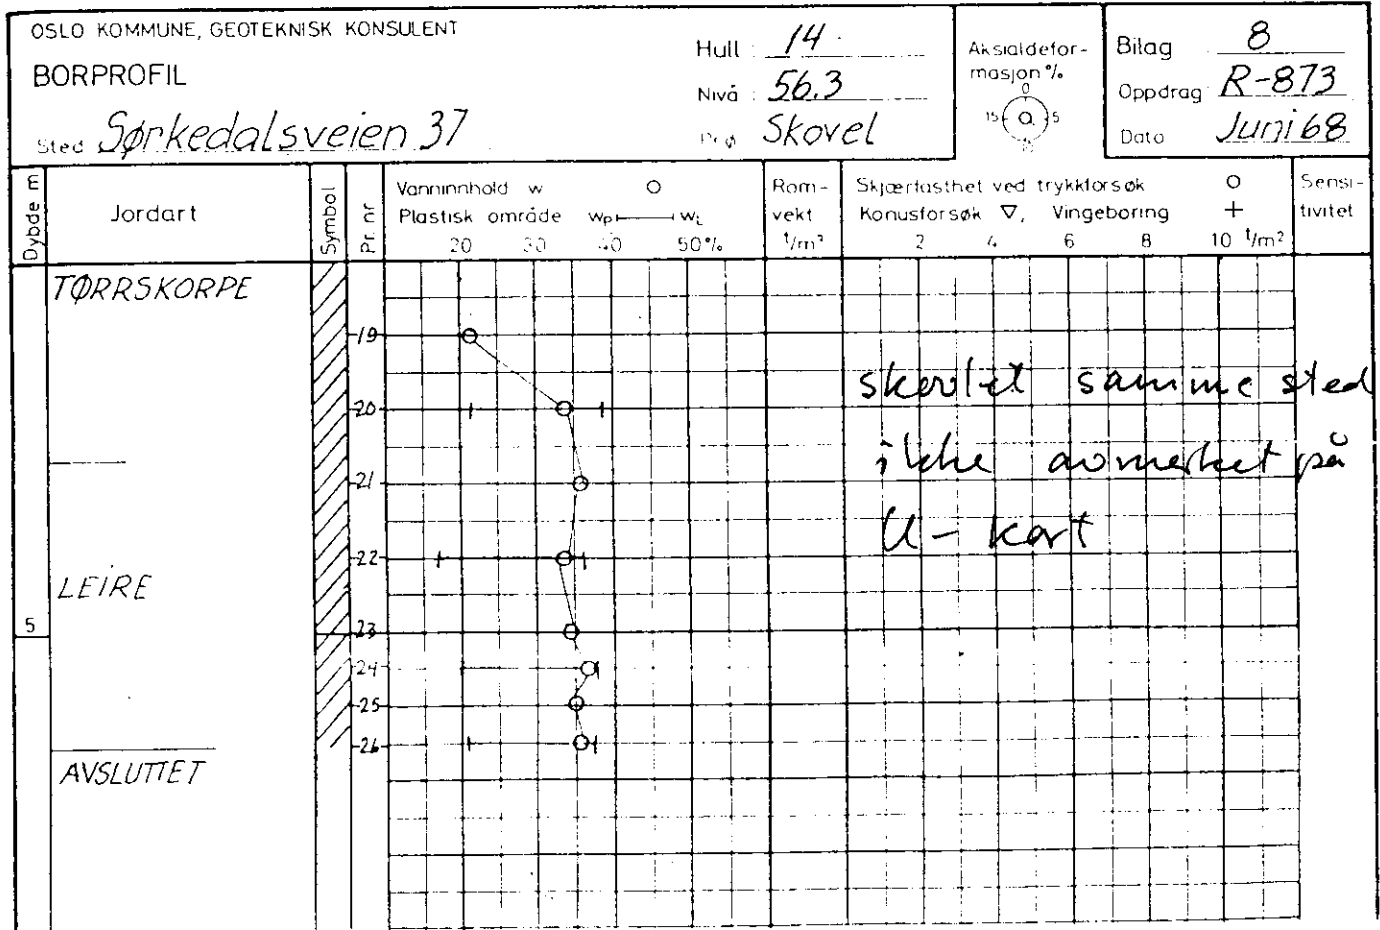 OSLO KOMMUNE, GEOTEKNISK KONSULENT
BORPROFIL
Sted Sørkedalsveien 37
Hull : 14
Nivå : 56.3
Prø Skovel
Aksialdefor-
masjon %
0
15 5
10
Bilag 8
Oppdrag R-873
Dato Juni 68
Dybde m
Jordart
Symbol
Pr. nr
Vanninnhold w O
Plastisk område wp wL
20 30 40 50%
Rom-
vekt
t/m³
Skjærfasthet ved trykkforsøk O
Konusforsøk ▽, Vingeboring +
2 4 6 8 10 t/m²
Sensi-
tivitet
TØRRSKORPE
19
skovlet samme sted
20
ikke avmerket på
21
U - kart
22
LEIRE
5
23
24
25
26
AVSLUTTET